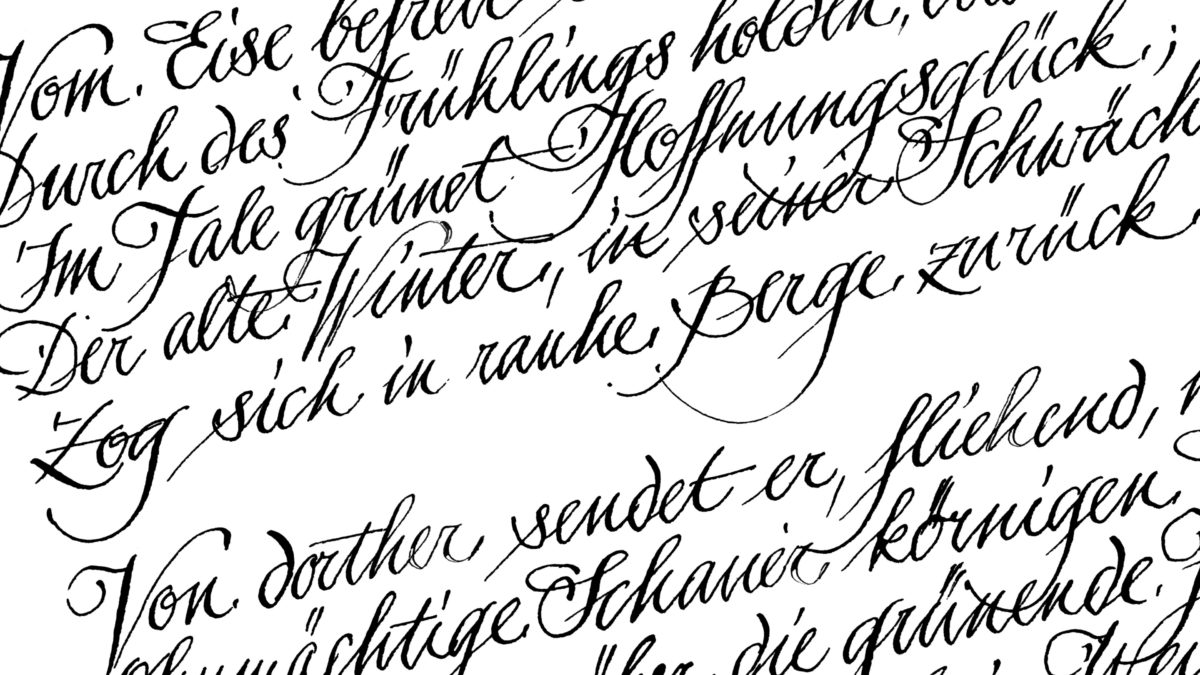 Vom Eise befreit
Durch des Frühlings holden,
Im Tale grünet Hoffnungsglück;
Der alte Winter, in seiner Schwäch
Zog sich in rauhe Berge zurück
Von dorther sendet er, fliehend,
ohnmächtige Schauer körnigen
über die grünende